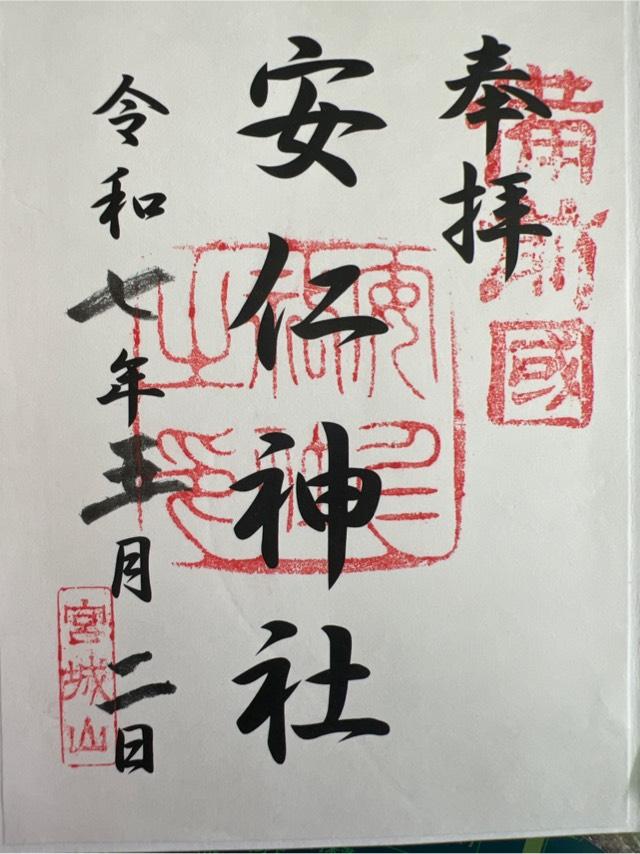 奉拝
備前國
安仁神社
安仁神社之印
令和七年五月二日
宮城山